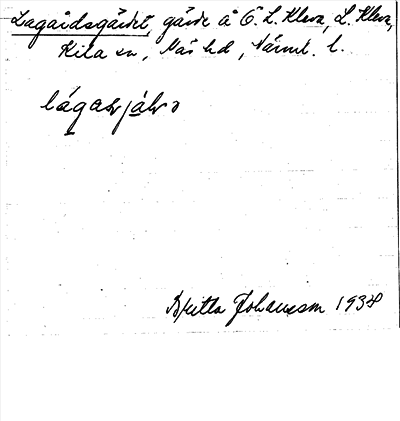 Lagårdsgärdet, gärde å Ö. L. Kleva, L. Kleva,
Kila sn, Näs hd, Värml. l.
lágaṣjálṣə
Britta Johansson 1934